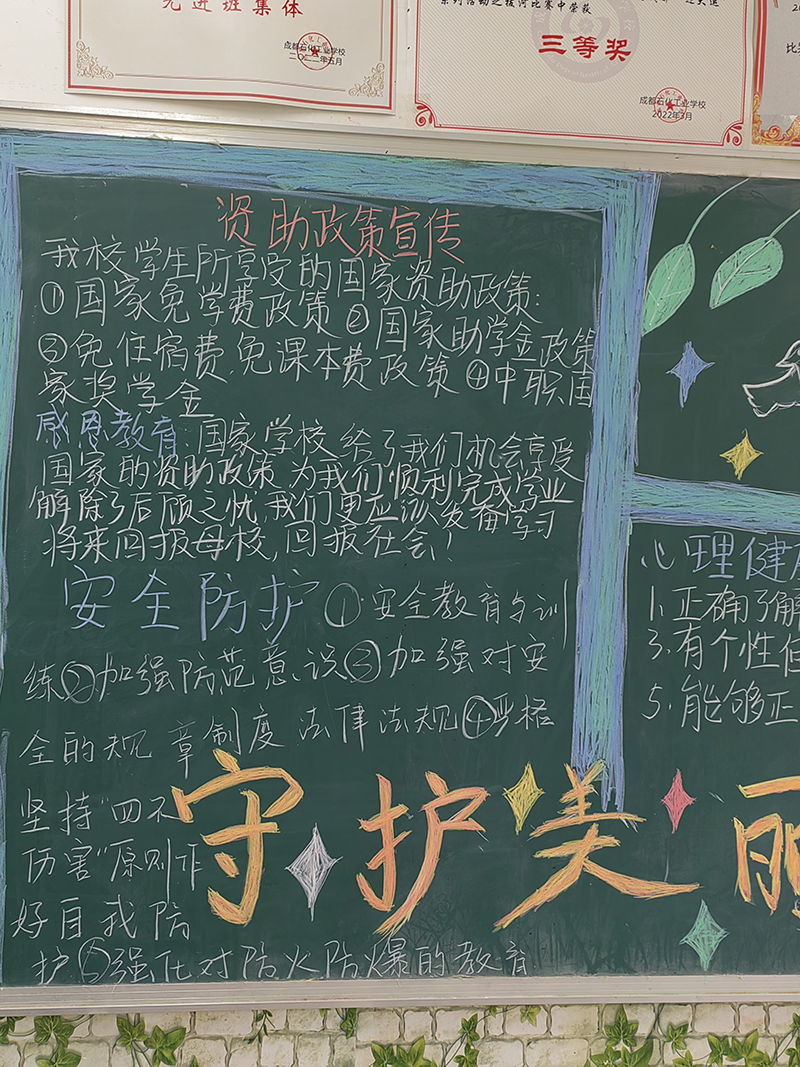 先进班集体
成都石化工业学校
二〇二二年五月
系列活动之拔河比赛中荣获
三等奖
成都石化工业学校
2022年3月
资助政策宣传
我校学生所享受的国家资助政策:
①国家免学费政策②国家助学金政策
③免住宿费,免课本费政策④中职国
家奖学金
感恩教育:国家学校给了我们机会享受
国家的资助政策,为我们顺利完成学业
解除了后顾之忧,我们更应该发奋学习
将来回报母校,回报社会!
安全防护①安全教育与训
练②加强防范意识③加强对安
全的规章制度法律法规④严格
坚持“四不
伤害”原则作
好自我防
护⑤强化对防火防爆的教育
守护美丽
心理健
1.正确了解
3.有个性
5.能够正